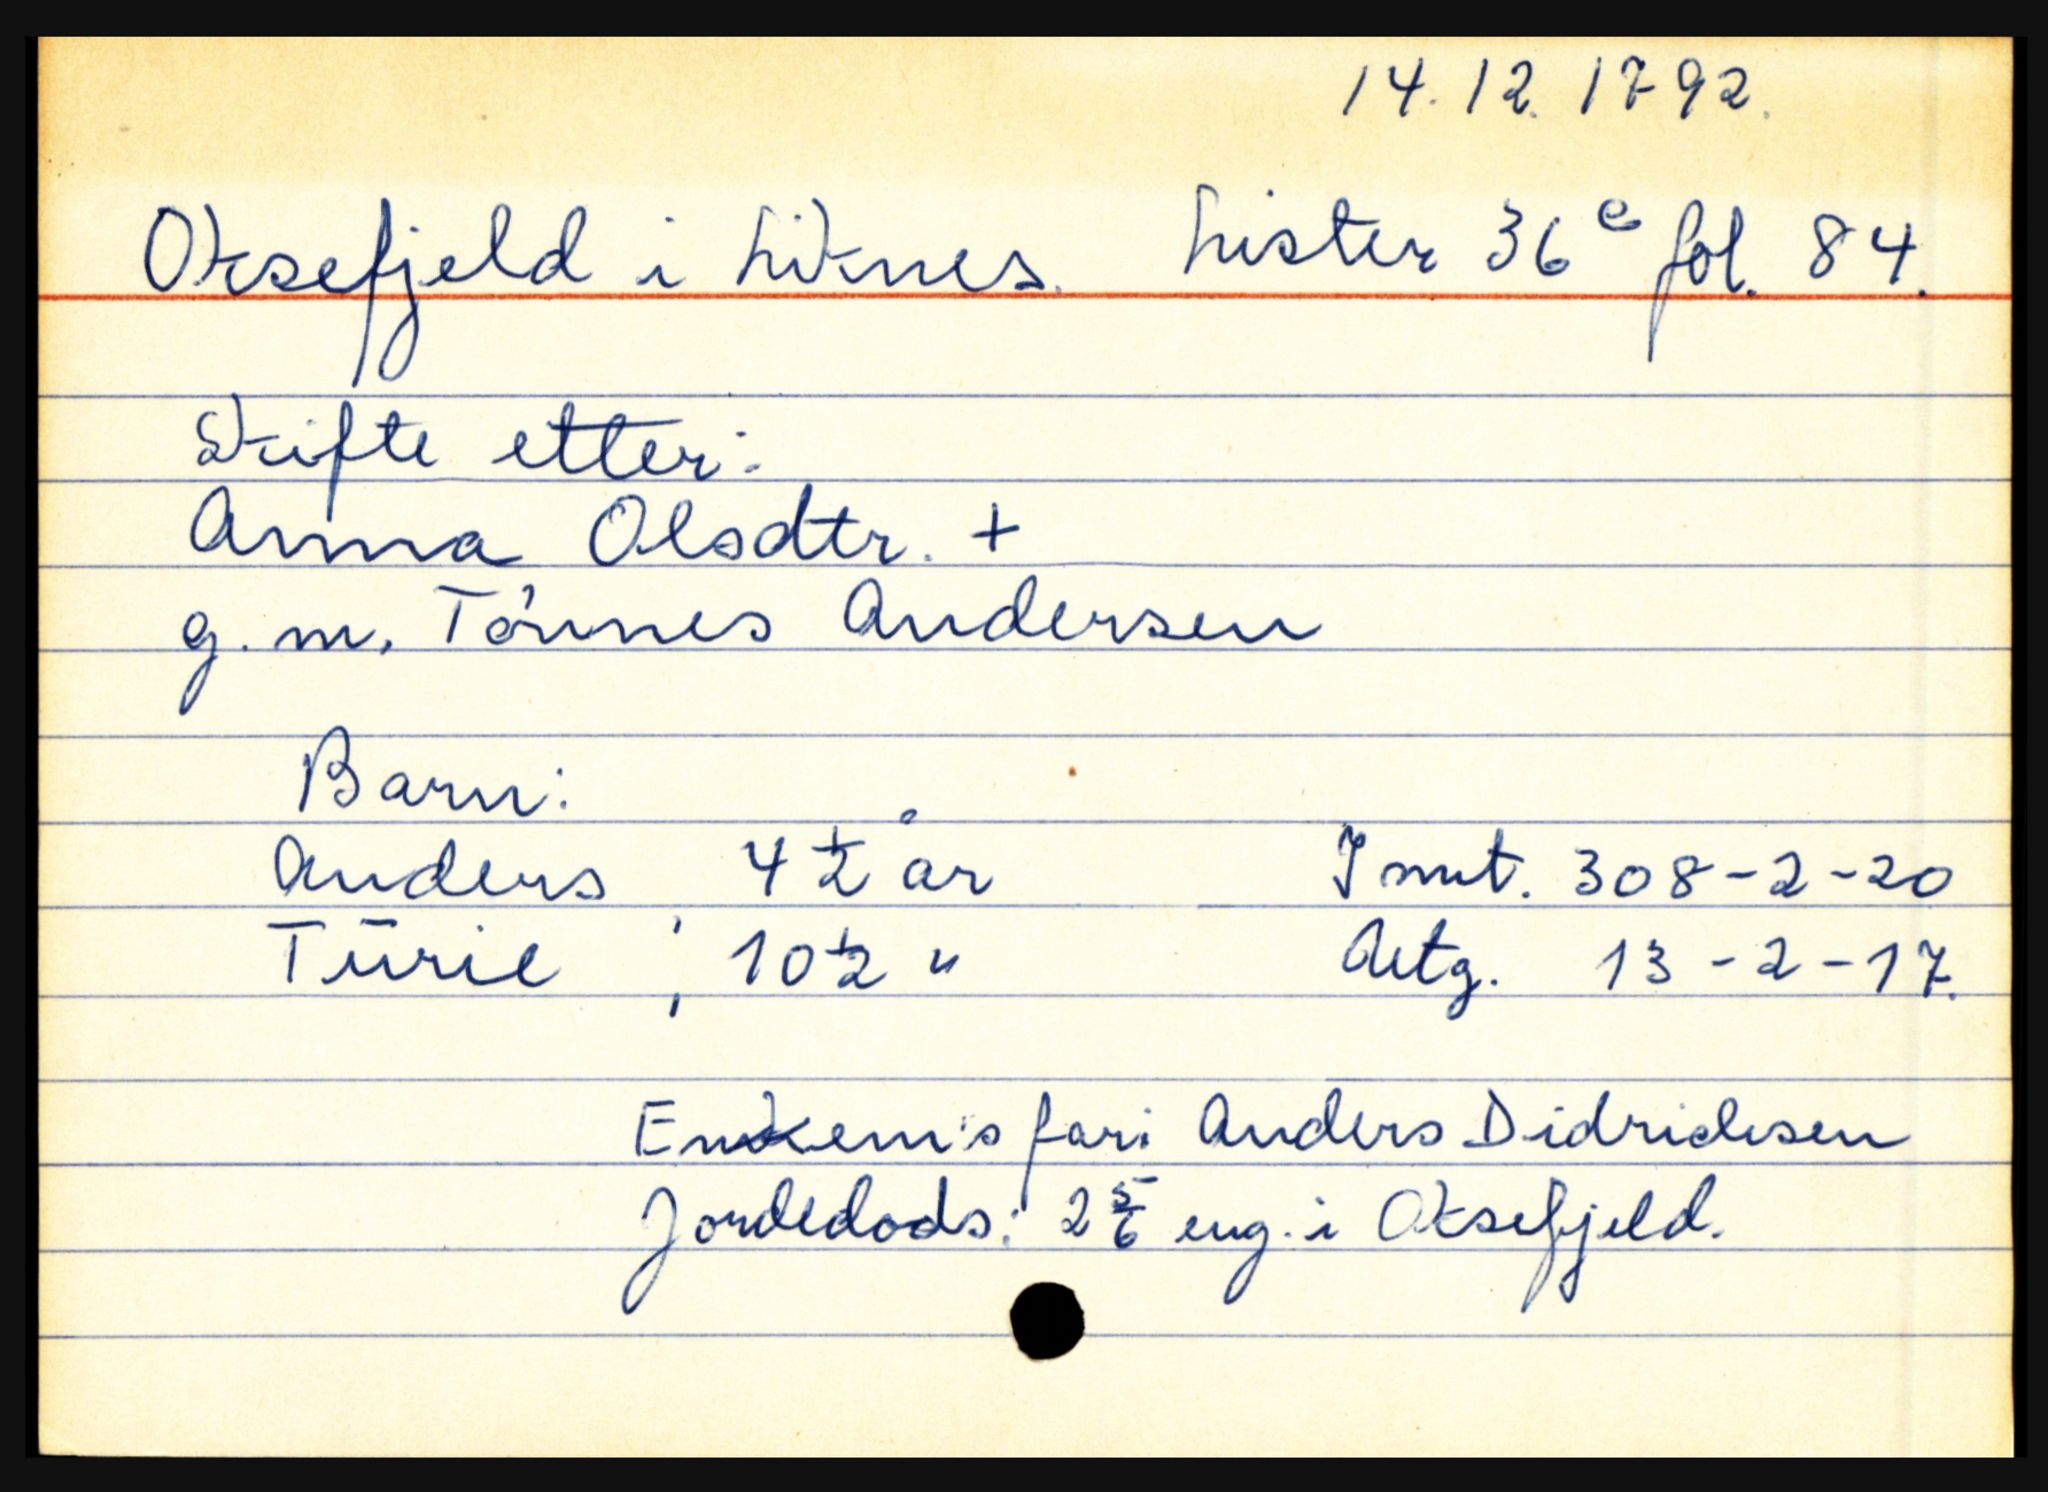 14.12.1792.
Oksefjeld i Liknes. Lister 36e fol. 84.
Skifte etter:
Anna Olsdtr. +
g. m. Tönnes Andersen
Barn:
Anders 4 1/2 år Innt. 308-2-20
Tūrie ; 10 1/2 " Utg. 13-2-17.
Enkem's far: Anders Didrichsen
Jordedods: 2 5/6 eng. i Oksefjeld.